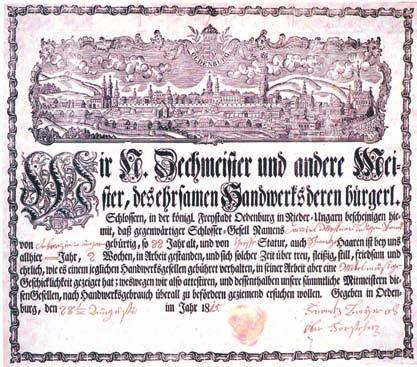 Wir N. Zechmeister und andere Mei-
ster, des ehrsamen Handwerks deren bürgerl.
Schlossern, in der königl. Freystadt Oedenburg in Nieder-Ungarn bescheinigen hie-
mit, daß gegenwärtiger Schlosser-Gesell Namens
von gebürtig, so 22 Jahr alt, und von Statur, auch Haaren ist bey uns
allhier Jahr, 2 Wochen, in Arbeit gestanden, und sich solcher Zeit über treu, fleißig, still, friedsam und
ehrlich, wie es einem jeglichen Handwerksgesellen gebühret verhalten, in seiner Arbeit aber eine
Geschicklichkeit gezeiget hat; weswegen wir also attestiren, und dessenthalben unsere sämmtliche Mitmeistern die-
sen Gesellen, nach Handwerksgebrauch überall zu befördern geziemend ersuchen wollen. Gegeben in Oeden-
burg, den 28 Augusti im Jahr 18